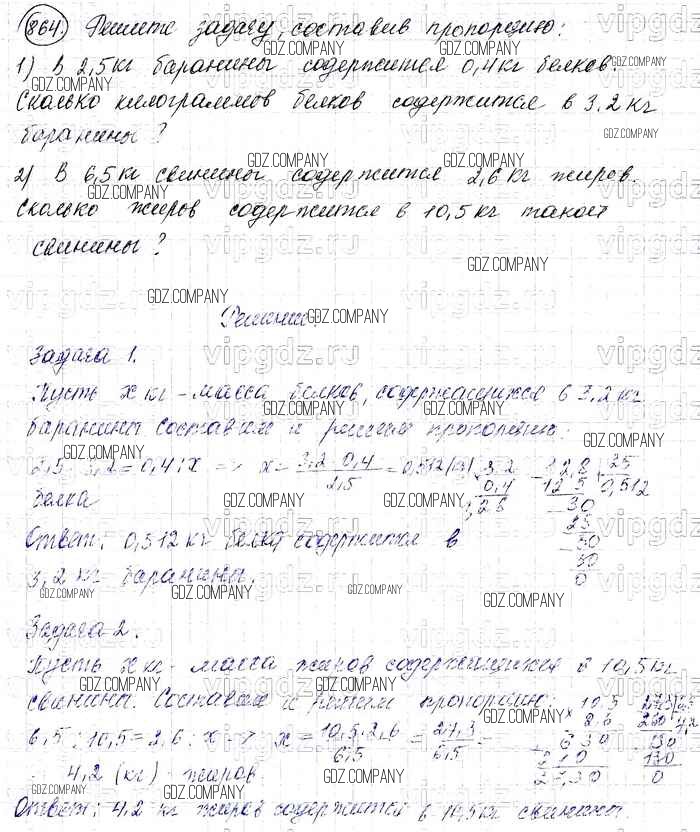 864. Решите задачу, составив пропорцию:
1) В 2,5 кг баранины содержится 0,4 кг белков.
Сколько килограммов белков содержится в 3,2 кг
баранины?
2) В 6,5 кг свинины содержится 2,6 кг жиров.
Сколько жиров содержится в 10,5 кг такой
свинины?
Решение.
Задача 1.
Пусть x кг - масса белков, содержащихся в 3,2 кг
баранины составим и решим пропорцию:
2,5 : 3,2 = 0,4 : x => x = 3,2 · 0,4 / 2,5 = 0,512 (кг)
белка
Ответ: 0,512 кг белка содержится в
3,2 кг баранины.
Задача 2.
Пусть x кг - масса жиров содержащихся в 10,5 кг
свинины. Составим и решим пропорцию:
6,5 : 10,5 = 2,6 : x => x = 10,5 · 2,6 / 6,5 = 27,3 / 6,5 =
4,2 (кг) жиров
Ответ: 4,2 кг жиров содержится в 10,5 кг свинины.
GDZ.COMPANY
vipgdz.ru